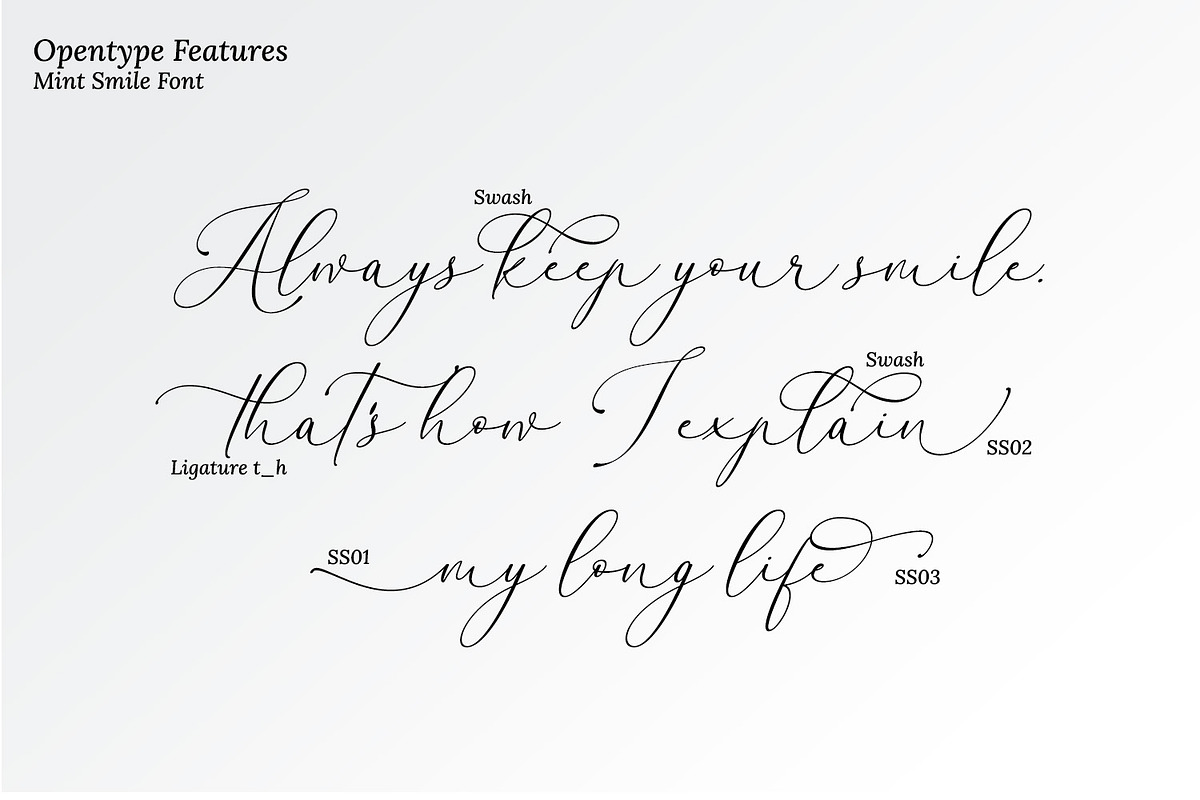 Opentype Features
Mint Smile Font
Swash
Always keep your smile.
Swash
that's how I explain
SS02
Ligature t_h
SS01
my long life
SS03